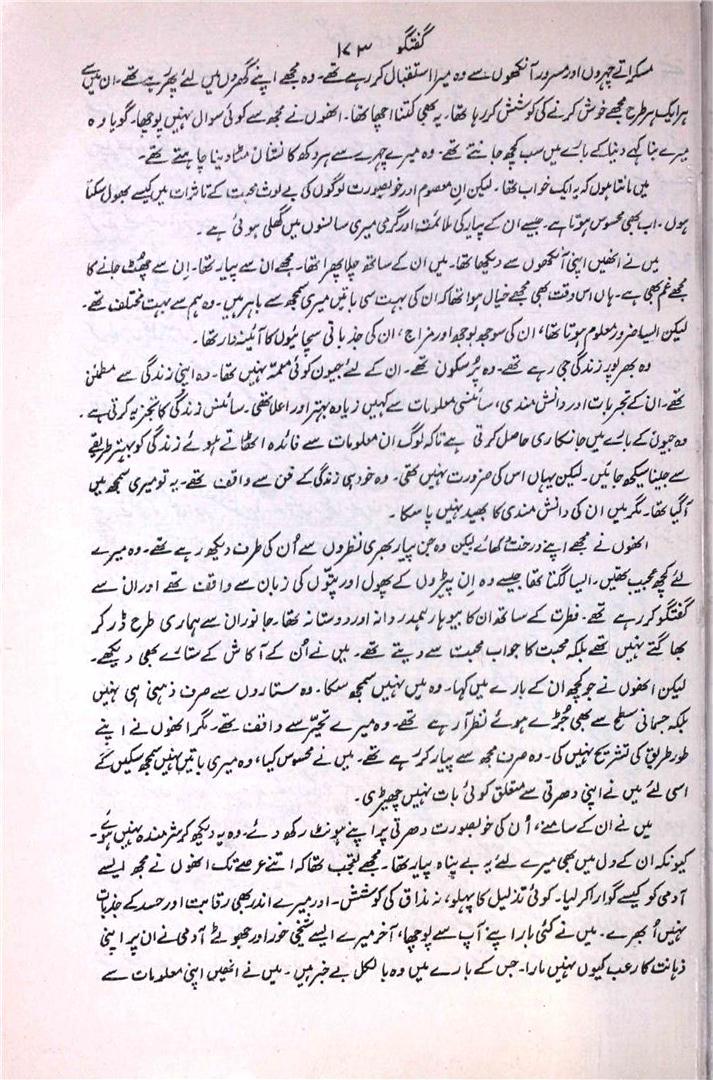 گفتگو ۱۷۳
مسکراتے چہروں اور مسرور آنکھوں سے وہ میرا استقبال کر رہے تھے۔ وہ مجھے اپنے گھروں میں لئے پھر رہے تھے۔ ان میں سے
ہر ایک ہر طرح مجھے خوش کرنے کی کوشش کر رہا تھا۔ یہ بھی کتنا اچھا تھا۔ انھوں نے مجھ سے کوئی سوال نہیں پوچھا۔ گویا وہ
میرے بنا کہے دنیا کے بارے میں سب کچھ جانتے تھے۔ وہ میرے چہرے سے ہر دکھ کا نشان مٹا دینا چاہتے تھے۔
میں مانتا ہوں کہ یہ ایک خواب تھا۔ لیکن ان معصوم اور خوبصورت لوگوں کی بے لوث محبت کے تاثرات میں کیسے بھول سکتا
ہوں۔ اب بھی محسوس ہوتا ہے۔ جیسے ان کے پیار کی ملائمت اور گرمی میری سانسوں میں گھلی ہوئی ہے۔
میں نے انھیں اپنی آنکھوں سے دیکھا تھا۔ میں ان کے ساتھ چلا پھرا تھا۔ مجھے ان سے پیار تھا۔ ان سے چھٹ جانے کا
مجھے غم بھی ہے۔ ہاں اس وقت بھی مجھے خیال ہوا تھا کہ ان کی بہت سی باتیں میری سمجھ سے باہر ہیں۔ وہ ہم سے بہت مختلف تھے۔
لیکن ایسا ضرور معلوم ہوتا تھا، ان کی سوجھ بوجھ اور مزاج، ان کی جذباتی سچائیوں کا آئینہ دار تھا۔
وہ بھرپور زندگی جی رہے تھے۔ وہ پُر سکون تھے۔ ان کے لئے جیون کوئی معمہ نہیں تھا۔ وہ اپنی زندگی سے مطمئن
تھے۔ ان کے تجربات اور دانش مندی، سائنسی معلومات سے کہیں زیادہ بہتر اور اعلا تھی۔ سائنس زندگی کا تجزیہ کرتی ہے۔
وہ جیون کے بارے میں جانکاری حاصل کرتی ہے تاکہ لوگ ان معلومات سے فائدہ اٹھاتے ہوئے زندگی کو بہتر طریقے
سے جینا سیکھ جائیں۔ لیکن یہاں اس کی ضرورت نہیں تھی۔ وہ خود ہی زندگی کے فن سے واقف تھے۔ یہ تو میری سمجھ میں
آگیا تھا۔ مگر میں ان کی دانش مندی کا بھید نہیں پا سکا۔
انھوں نے مجھے اپنے درخت دکھائے لیکن وہ جن پیار بھری نظروں سے اُن کی طرف دیکھ رہے تھے۔ وہ میرے
لئے کچھ عجیب تھیں۔ ایسا لگتا تھا جیسے وہ اِن پیڑوں کے پھول اور پتوں کی زبان سے واقف تھے اور ان سے
گفتگو کر رہے تھے۔ فطرت کے ساتھ ان کا بیوہار ہمدردانہ اور دوستانہ تھا۔ جانور ان سے ہماری طرح ڈر کر
بھاگتے نہیں تھے بلکہ محبت کا جواب محبت سے دیتے تھے۔ میں نے اُن کے آکاش کے ستارے بھی دیکھے۔
لیکن انھوں نے جو کچھ ان کے بارے میں کہا۔ وہ میں نہیں سمجھ سکا۔ وہ ستاروں سے صرف ذہنی ہی نہیں
بلکہ جسمانی سطح سے بھی جُڑے ہوئے نظر آ رہے تھے۔ وہ میرے تحیّر سے واقف تھے۔ مگر انھوں نے اپنے
طور طریق کی تشریح نہیں کی۔ وہ صرف مجھ سے پیار کر رہے تھے۔ میں نے محسوس کیا، وہ میری باتیں نہیں سمجھ سکیں گے
اسی لئے میں نے اپنی دھرتی سے متعلق کوئی بات نہیں چھیڑی۔
میں نے ان کے سامنے، اُن کی خوبصورت دھرتی پر اپنے ہونٹ رکھ دئے۔ وہ یہ دیکھ کر شرمندہ نہیں ہوئے۔
کیونکہ ان کے دل میں بھی میرے لئے یہ بے پناہ پیار تھا۔ مجھے تعجب تھا کہ اتنے عرصے تک انھوں نے مجھ ایسے
آدمی کو کیسے گوارا کر لیا۔ کوئی تذلیل کا پہلو، نہ مذاق کی کوشش۔ اور میرے اندر بھی رقابت اور حسد کے جذبات
نہیں اُبھرے۔ میں نے کئی بار اپنے آپ سے پوچھا، آخر میرے ایسے شیخی خور اور جھوٹے آدمی نے ان پر اپنی
ذہانت کا رعب کیوں نہیں مارا۔ جس کے بارے میں وہ بالکل بے خبر ہیں۔ میں نے انھیں اپنی معلومات سے